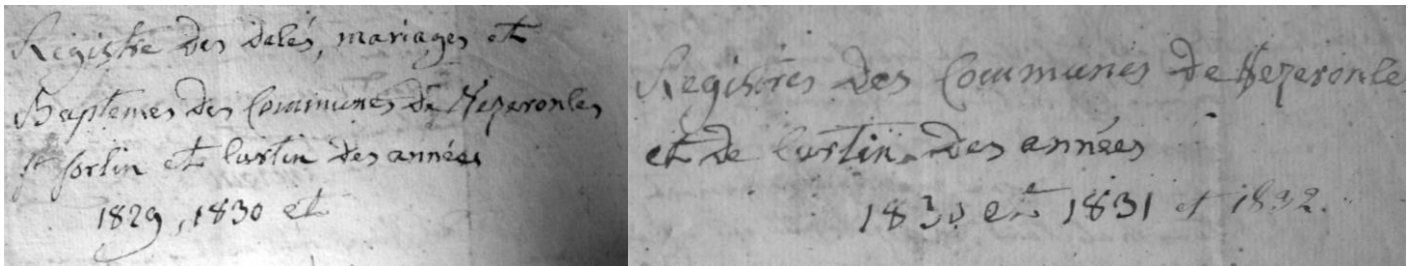 Registre des délés, mariages et
Baptemes des Communes de Vezeronles
st sorlin et Curtin des années
1829, 1830 et
Registres des Communes de Vezeronle
et de Curtin. Des années
1830 et 1831 et 1832.